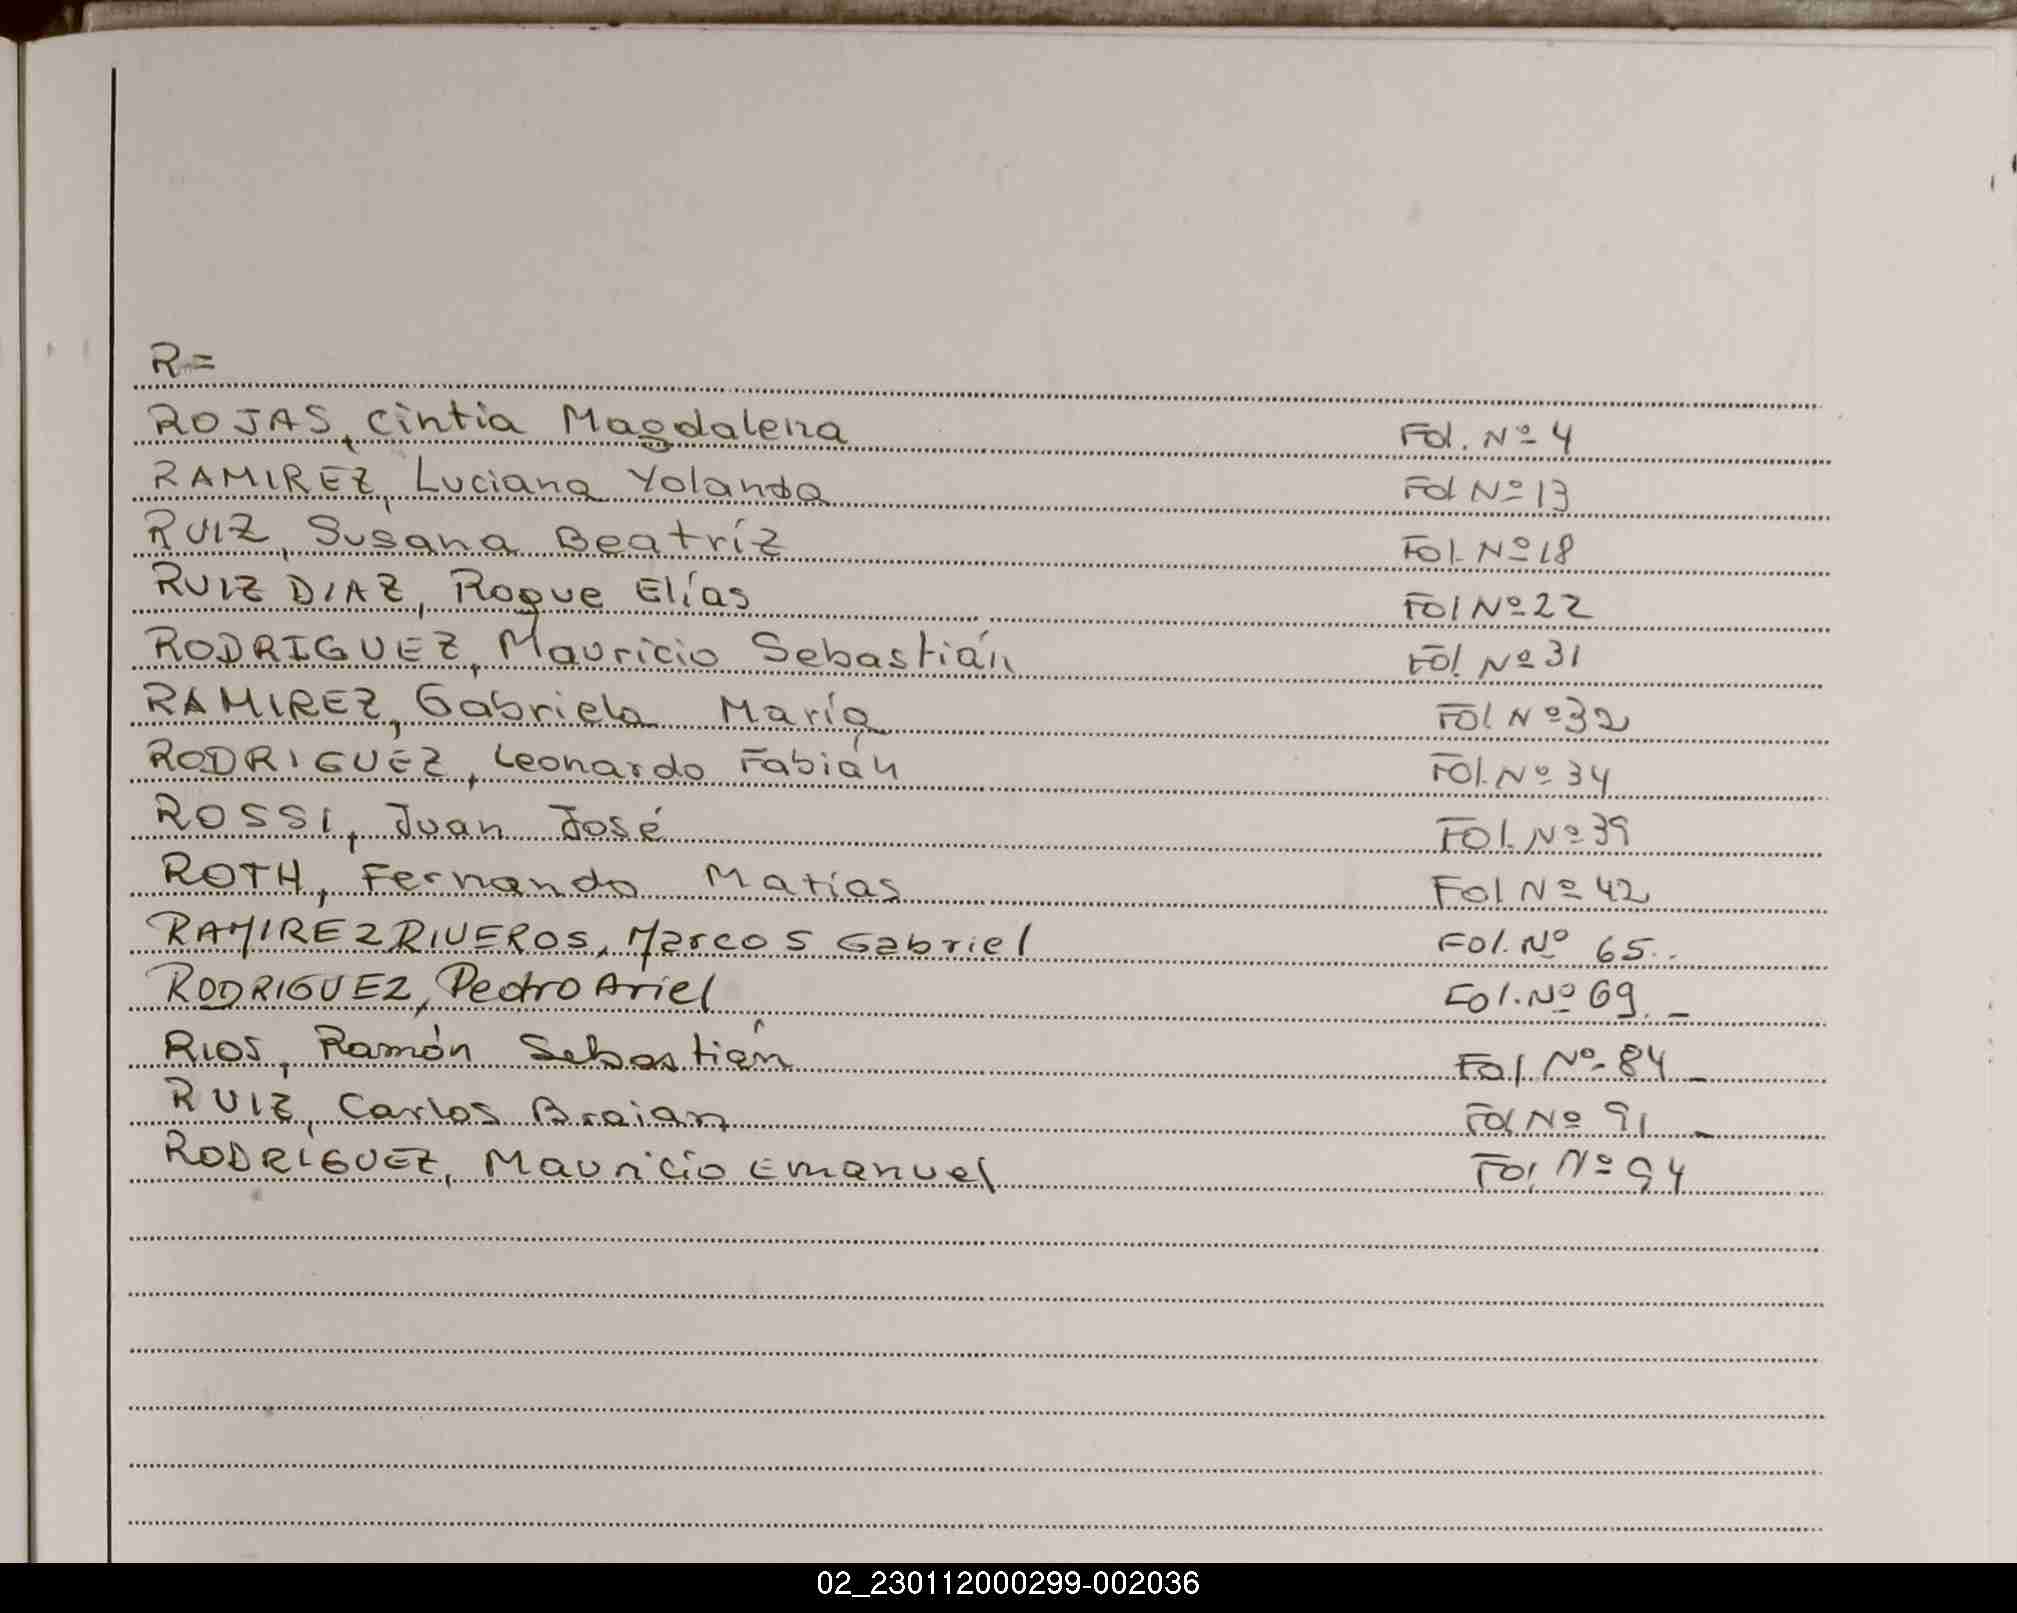 R=
ROJAS, Cintia Magdalena Fol. Nº 4
RAMIREZ, Luciana Yolanda Fol Nº 13
RUIZ, Susana Beatríz Fol. Nº 18
RUIZ DIAZ, Roque Elías Fol Nº 22
RODRIGUEZ, Mauricio Sebastián Fol. Nº 31
RAMIREZ, Gabriela María Fol. Nº 32
RODRIGUEZ, Leonardo Fabián Fol. Nº 34
ROSSI, Juan José Fol. Nº 39
ROTH, Fernando Matías Fol Nº 42
RAMIREZ RIVEROS, Marcos Gabriel Fol. Nº 65.-
RODRIGUEZ, Pedro Ariel Fol. Nº 69. -
RIOS, Ramón Sebastián Fol. Nº 84 -
RUIZ, Carlos Braian Fol Nº 91 -
RODRÍGUEZ, Mauricio Emanuel Fol Nº 94
02_230112000299-002036